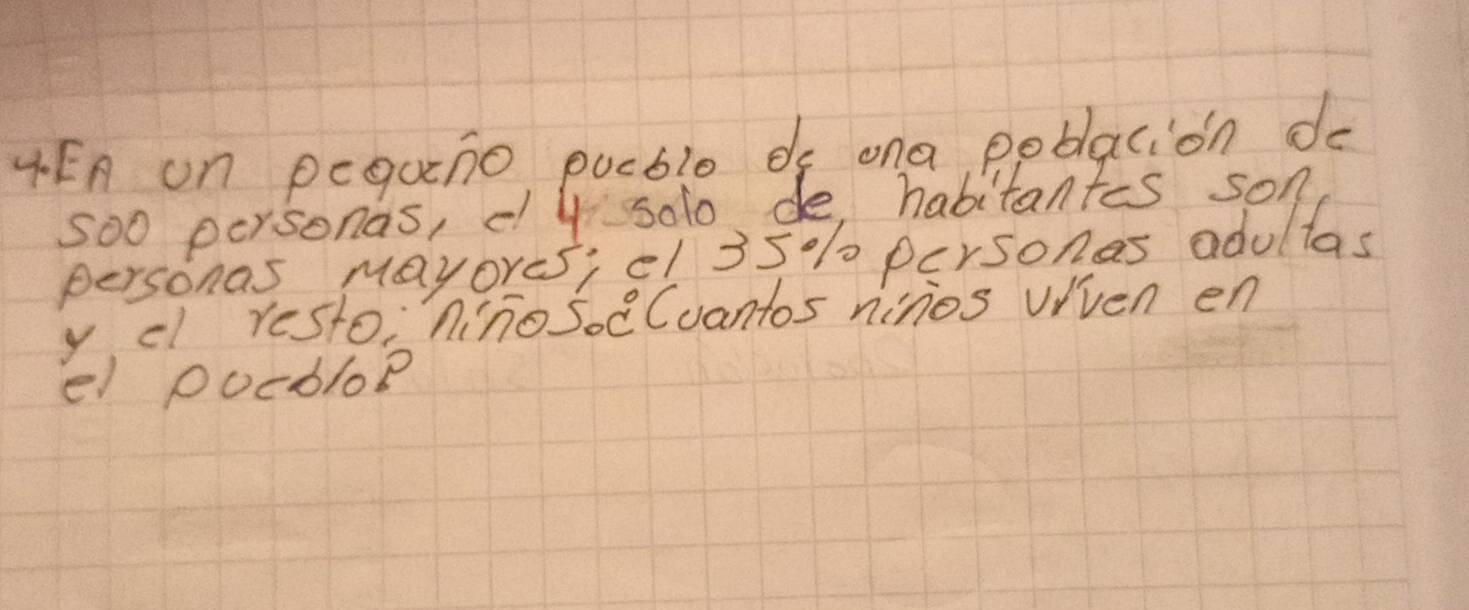 4. En un pequeño pueblo de una población de
500 personas, el 4 solo de, habitantes son,
personas Mayores; el 35% personas adultas
y el resto; niños. ¿Cuantos niños viven en
el pueblo?